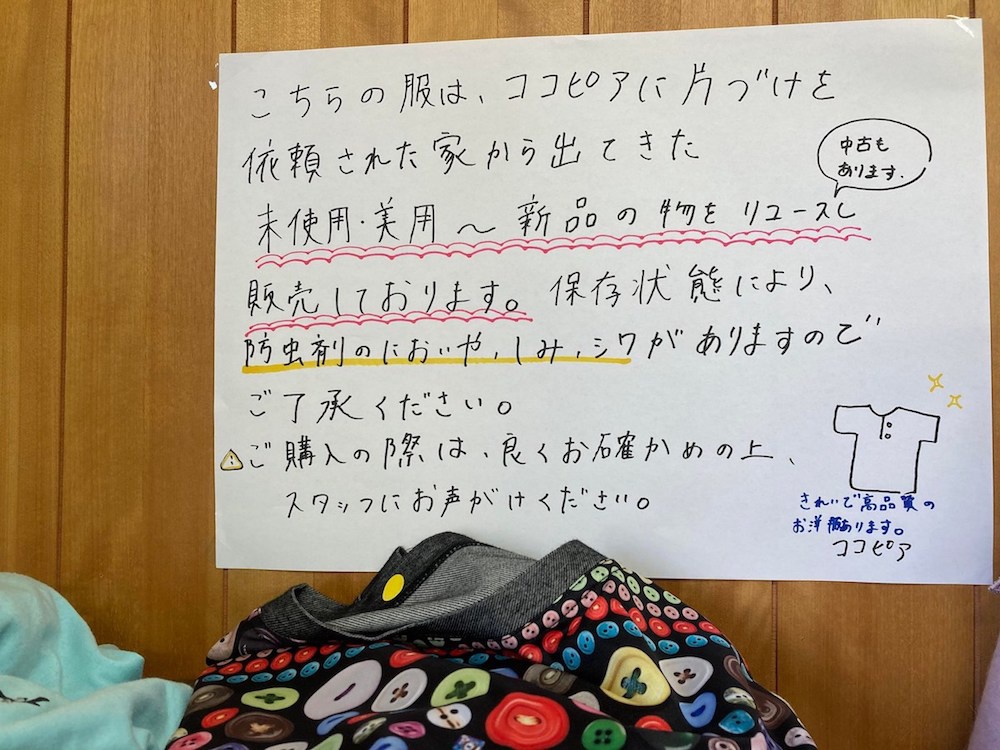 こちらの服は、ココピアに片づけを
依頼された家から出てきた
中古も
あります.
未使用・美用～新品の物をリユースし
販売しております。保存状態により、
防虫剤のにおいや,しみ,シワがありますので
ご了承ください。
⚠ご購入の際は、良くお確かめの上、
スタッフにお声がけください。
きれいで高品質の
お洋服あります。
ココピア